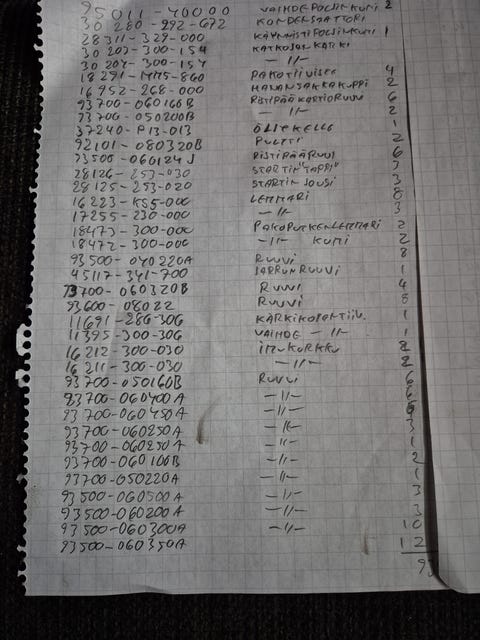 95011-40000 VAIHDEPOLSINKUMI 2
30280-292-672 KONDENSAATTORI
28311-329-000 KÄYNNISTIPOLSINKUMI 1
30202-300-154 KATKOJANKÄRKI
30204-300-154 -11-
18291-MM5-860 PAKOTIIVISTE 4
16952-268-000 HANANSAKKAKUPPI 2
93700-060166B RISTIPÄÄKARTIORUUVI 6
93700-050200B -11- 2
37240-P13-013 ÖLJYKELLO 1
92101-080320B PULTTI 2
93500-060124J RISTIPÄÄRUUVI 6
28126-253-030 STARTIN"TAPPI" 3
28125-253-020 STARTINJOUSI 3
16223-KS5-000 LEMMARI 8
17255-230-000 -11- 3
18473-300-000 PAKOPUTKENLEMMARI 2
18472-300-000 -11- KUMI 2
93500-040220A RUUVI 8
45117-341-700 JARRUNRUUVI 1
93700-060320B RUUVI 4
93600-08022 RUUVI 8
11691-286-306 1
11395-300-306 VAIHDE -11- 1
16212-300-030 IMUKURKKU 2
16211-300-030 -11- 2
93700-050160B RUUVI 6
93700-060400A -11- 6
93700-060450A -11-
93700-060250A -11- 3
93700-060250A -11- 1
93700-060100B -11- 2
93700-050220A -11- 1
93500-060500A -11- 3
93500-060200A -11- 3
93500-060300A -11- 10
93500-060350A 12